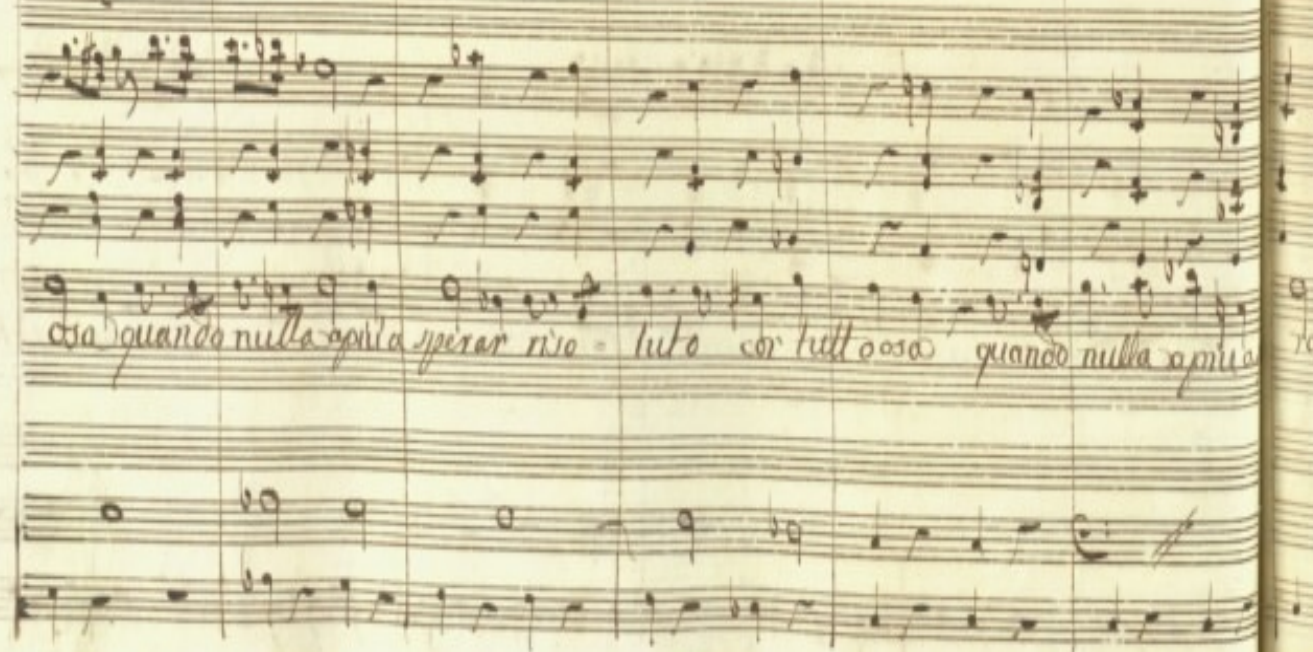 osa quando nulla apiù a sperar riso = luto cor tutto osa quando nulla a più a